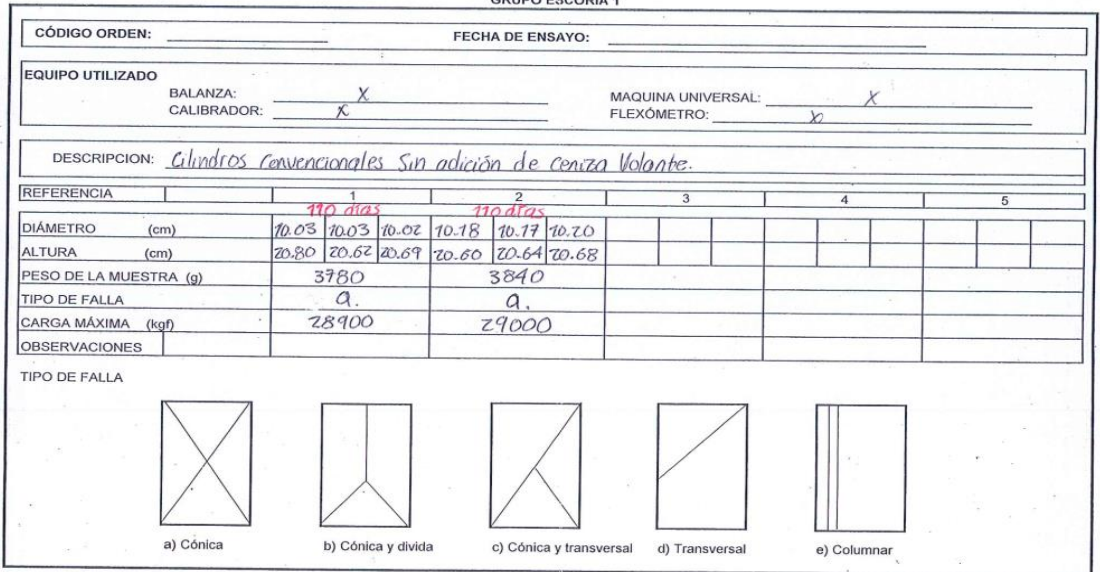 GRUPO ESCORIA 1
CÓDIGO ORDEN: FECHA DE ENSAYO:
EQUIPO UTILIZADO
BALANZA: X MAQUINA UNIVERSAL: X
CALIBRADOR: X FLEXÓMETRO: X
DESCRIPCION: Cilindros Convencionales Sin adición de Ceniza Volante.
REFERENCIA 1 2 3 4 5
110 días 110 días
DIÁMETRO (cm) 10.03 10.03 10.02 10.18 10.17 10.20
ALTURA (cm) 20.80 20.62 20.69 20.60 20.64 20.68
PESO DE LA MUESTRA (g) 3780 3840
TIPO DE FALLA a. a.
CARGA MÁXIMA (kgf) 28900 29000
OBSERVACIONES
TIPO DE FALLA
a) Cónica b) Cónica y divida c) Cónica y transversal d) Transversal e) Columnar